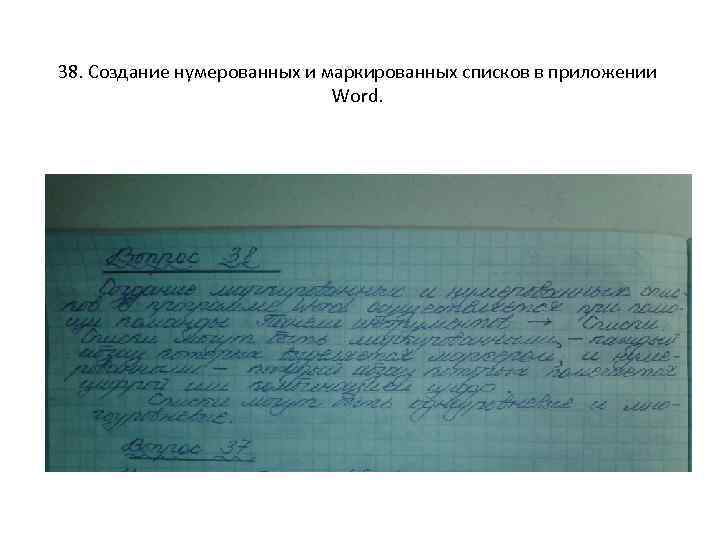 38. Создание нумерованных и маркированных списков в приложении
Word.
Вопрос 38
Создание маркированных и нумерованных спис-
ков в программе Word осуществляется при помо-
щи команды Панели инструментов → Списки.
Списки могут быть маркированными, – каждый
абзац которых выделяется маркером, и нуме-
рованными – каждый абзац которых помечается
цифрой или комбинацией цифр.
Списки могут быть одноуровневые и мно-
гоуровневые.
Вопрос 37